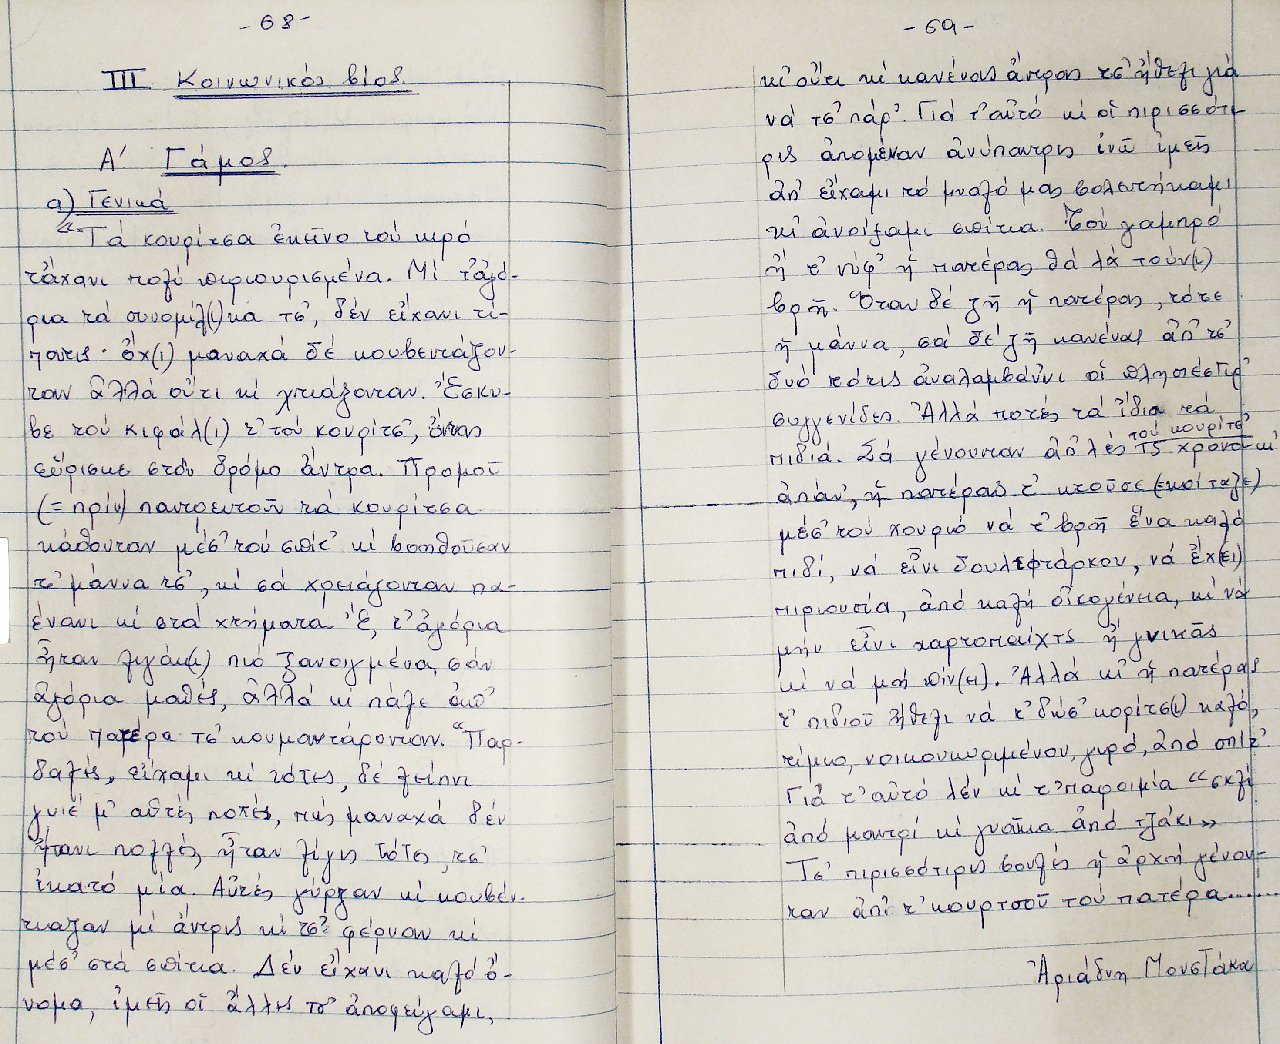 - 68 -
III Κοινωνικός βίος.
Α΄ Γάμος.
α) Γενικά
"Τά κουρίτσα ἐκεῖνο τού κιρό
τἄχανι πολύ πιριουρισμένα. Μί τἀγό-
ρια τά συνομίλ(ι)κα τσ', δέν εἴχανι τί-
πατις· ὄχ(ι) μαναχά δέ κουβεντάζον-
ταν ἀλλά οὔτι κί χτιάζονταν. Ἔσκυ-
βε τού κιφάλ(ι) τ' τού κουρίτσ', ὄντας
εὕρισκε στου δρόμο ἄντρα. Προμοῦ
(= πρίν) παντρευτοῦν τά κουρίτσα
κάθουνταν μέσ' τού σπίτ' κί βοηθοῦσαν
τ' μάννα τσ', κί σά χρειάζονταν πα-
ένανι κί στά χτήματα. Ἔ, τ' ἀγόρια
ἦταν λιγάκ(ι) πιό ξανοιγμένα, σάν
ἀγόρια μαθές, ἀλλά κί πάλε ἀπ'
τού πατέρα τσ' κουμαντάρονταν. "Παρ-
δαλές, εἴχαμι κί τότες, δέ λείπνι
γιέ μ' αὐτές ποτές, πώς μαναχά δέν
ἤτανι πολλές, ἦταν λίγις τότες, τσ'
ἱκατό μία. Αὐτές γύρζαν κί κουβέν-
τιαζαν μί ἄντρις κί τσ' φέρναν κί
μέσ' στά σπίτια. Δέν εἴχανι καλό ὄ-
νομα, ἱμεῖς οἱ ἄλλες τσ' ἀποφεύγαμι,
- 69 -
κι' οὔτι κί κανένας ἄντρας τσ' ἤθελι γιά
νά τσ' πάρ'. Γιά τ' αὐτό κί οἱ πιρισσότι-
ρις ἀπομέναν ἀνύπαντρις ἱνῶ ἱμεῖς
ἀπ' εἴχαμι τό μυαλό μας βολευτήκαμι
κί ἀνοίξαμι σπίτια. Τού γαμπρό
ἤ τ' νύφ' ἤ πατέρας θά λά τούν(ι)
βρῆ. Ὅταν δέ ζῆ ἤ πατέρας, τότε
ἤ μάννα, σά δέ ζῆ κανένας ἀπ' τσ'
δυό τότις ἀναλαμβάννι οἱ πλησιέστιρ'
συγγενίδες. Ἀλλά ποτές τά ἴδια τά
πιδιά. Σά γένουνταν ἀπ' λές τού κουρίτσ' 15 χρονώ κί
ἀπάν', ἤ πατέρας τ' κτοῦσε (ἐκοίταζε)
μέσ' τού χουριό νά τ' βρῆ ἕνα καλό
πιδί, νά εἶνι δουλιφτάρκου, νά ἔχ(ει)
πιριουσία, ἀπό καλή οἰκογένεια, κί νά
μήν εἶνι χαρτοπαίχτς ἤ γνικᾶς
κί νά μή πίν(ει). Ἀλλά κί ἤ πατέρας
τ' πιδιοῦ ἤθελι νά τ' δώσ' κορίτσ(ι) καλό,
τίμιο, νοικουκυριμένου, γιρό, ἀπό σπίτ'
Γιά τ' αὐτό λέν κί τ' παροιμία "σκλί
ἀπό μαντρί κί γναῖκα ἀπό τζάκι"
Τσ' περισσότιρις βουλές ἤ ἀρχή γένου-
ταν ἀπί τ' κουρτσοῦ τού πατέρα.........
Ἀριάδνη Μουστάκα